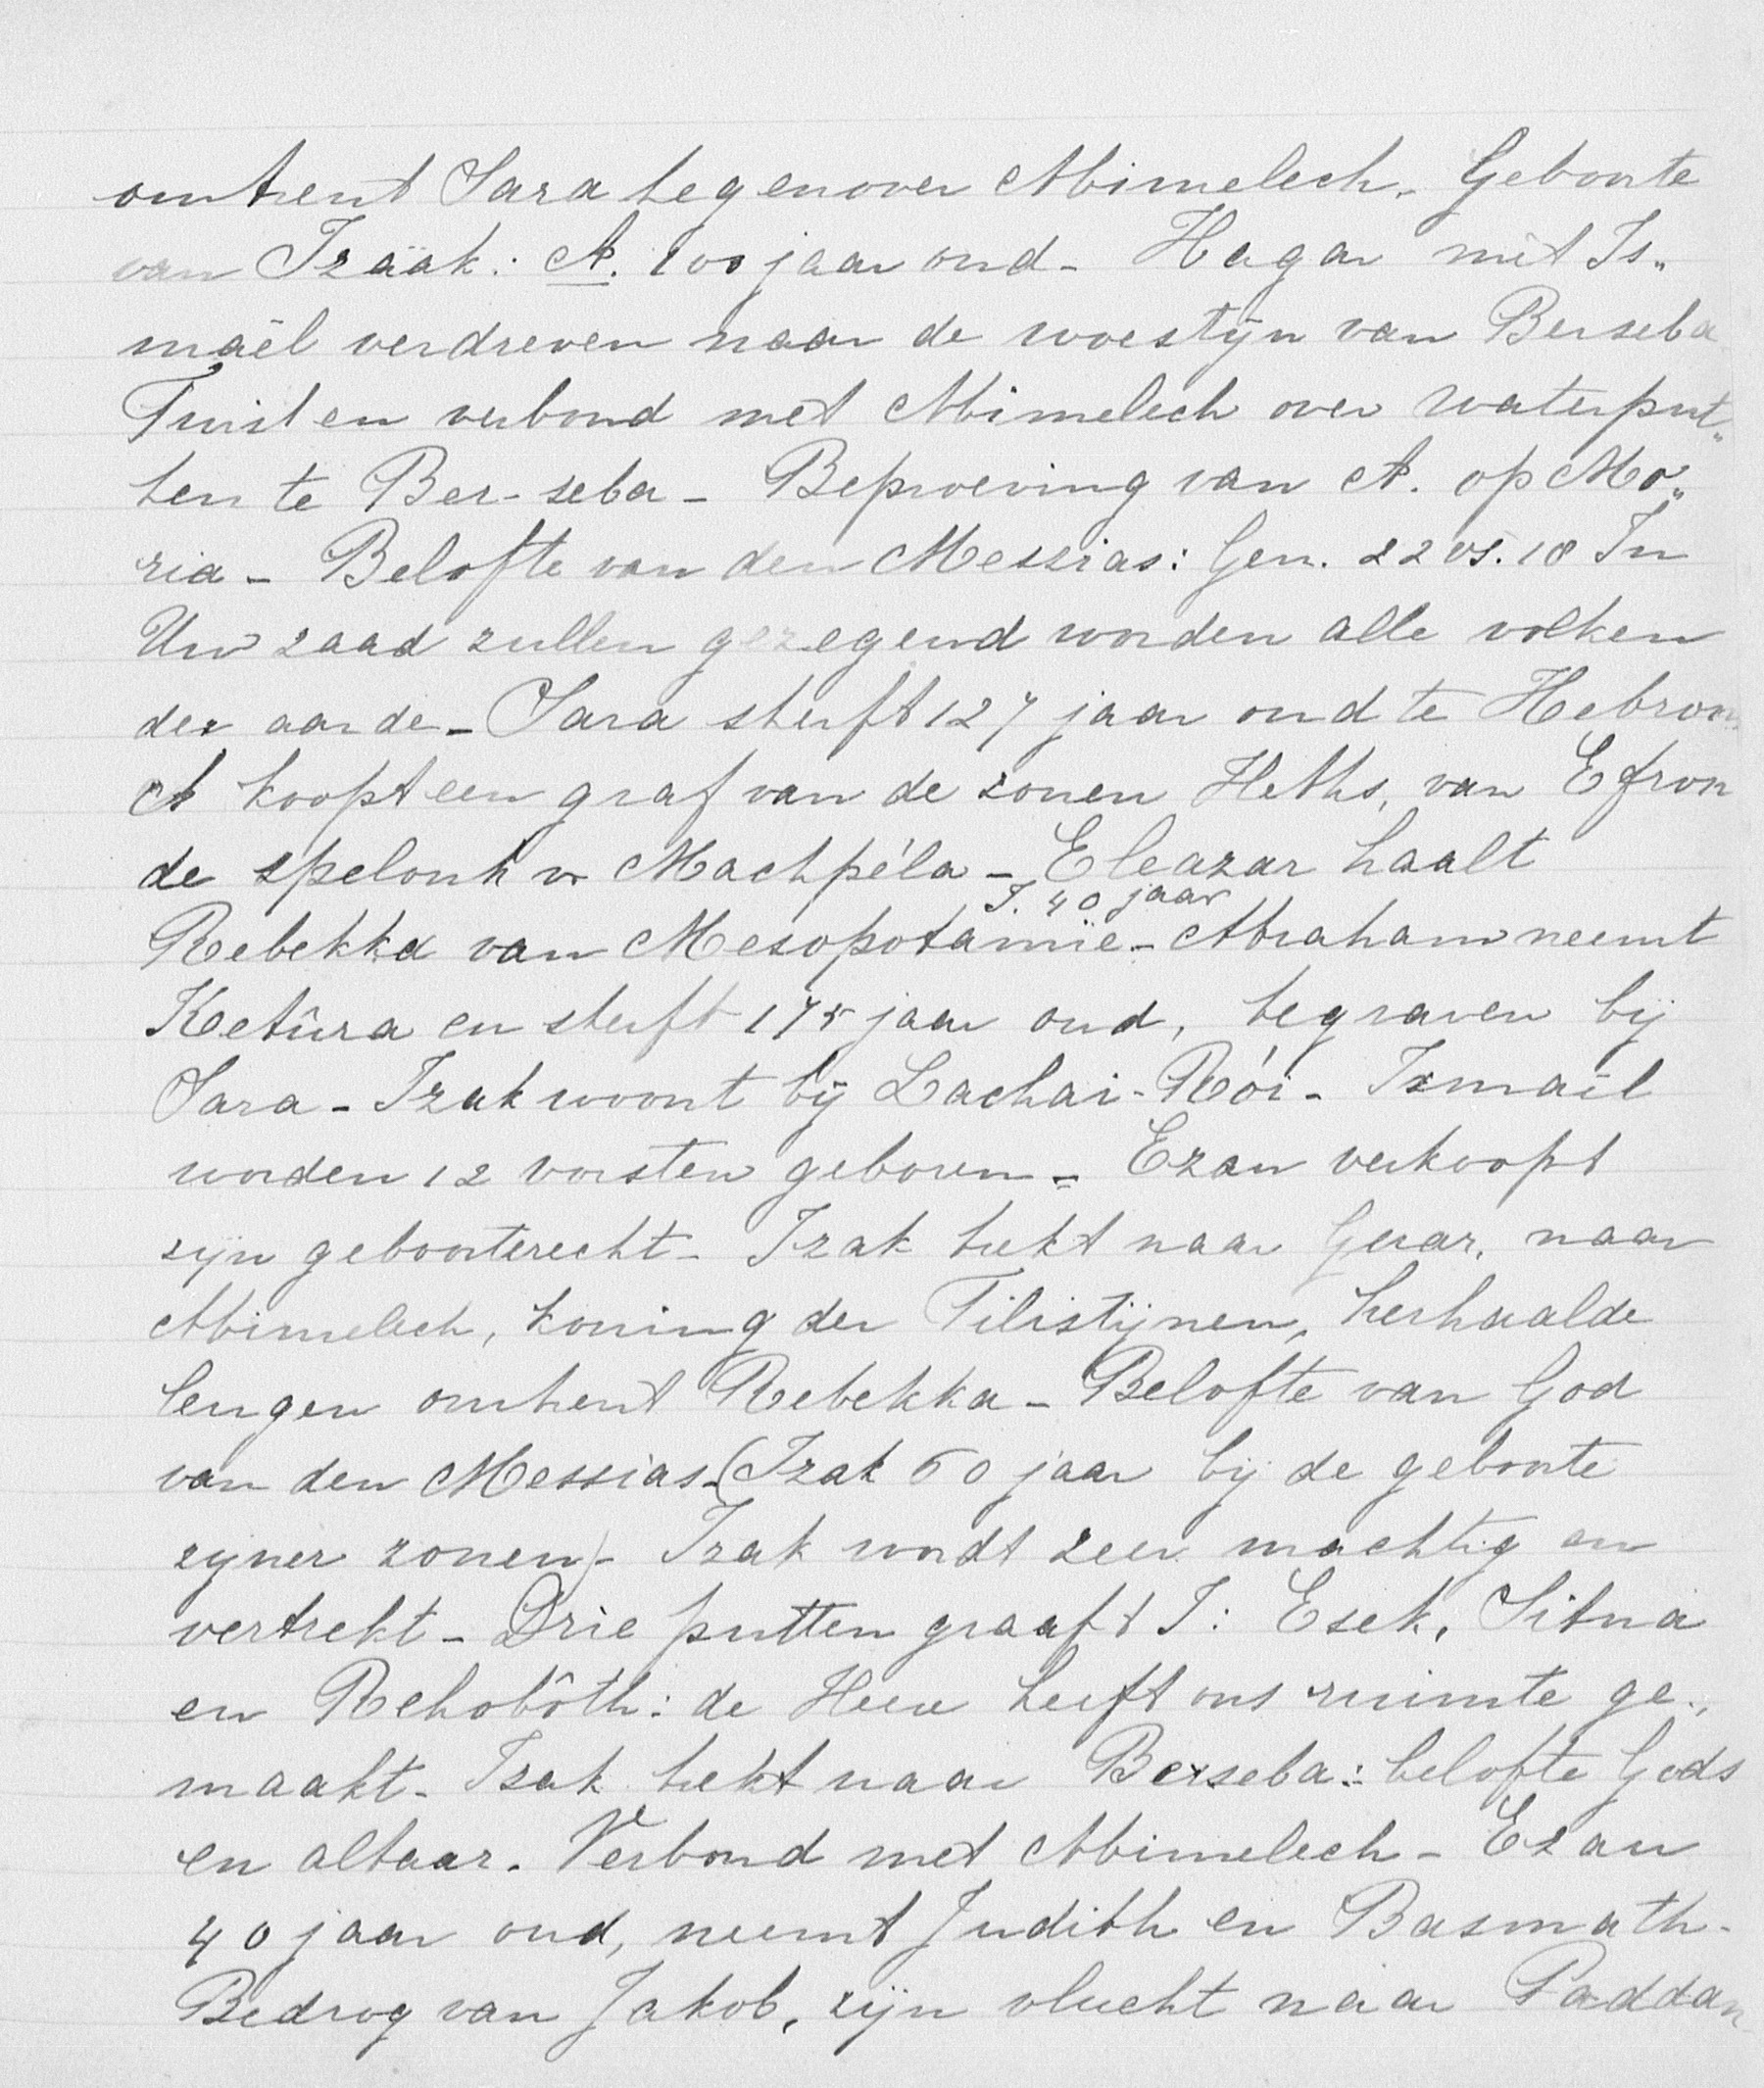 omtrent Sara tegenover Abimelech. Geboorte
van Izäak: A. 100 jaar oud - Hagar met Is„
maël verdreven naar de woestijn van Berseba
Twist en verbond met Abimelech over waterput„
ten te Ber-seba - Beproeving van A. op Mo„
ria - Belofte van den Messias: Gen. 22 vs. 18 In
Uw zaad zullen gezegend worden alle volken
der aarde - Sara sterft 127 jaar oud te Hebron
A koopt een graf van de zonen Heths, van Efron
de spelonk v. Machpéla - Eleazar haalt
I. 40 jaar
Rebekka van Mesopotamïe - Abraham neemt
Ketûra en sterft 175 jaar oud, begraven bij
Sara - Izak woont bij Lachai-Rói - Ismaël
worden 12 vorsten geboren - Ezau verkoopt
zijn geboorterecht - Izak trekt naar Gerar, naar
Abimelech, koning der Filistijnen, herhaalde
leugen omtrent Rebekka - Belofte van God
van den Messias - (Izak 60 jaar bij de geboorte
zijner zonen) - Izak wordt zeer machtig en
vertrekt - Drie putten graaft I: Esek, Sitna
en Rehobôth: de Heere heeft ons ruimte ge„
maakt - Izak trekt naar Berseba: belofte Gods
en altaar. Verbond met Abimelech - Ezau
40 jaar oud, neemt Judith en Basmath -
Bedrog van Jakob, zijn vlucht naar Paddan